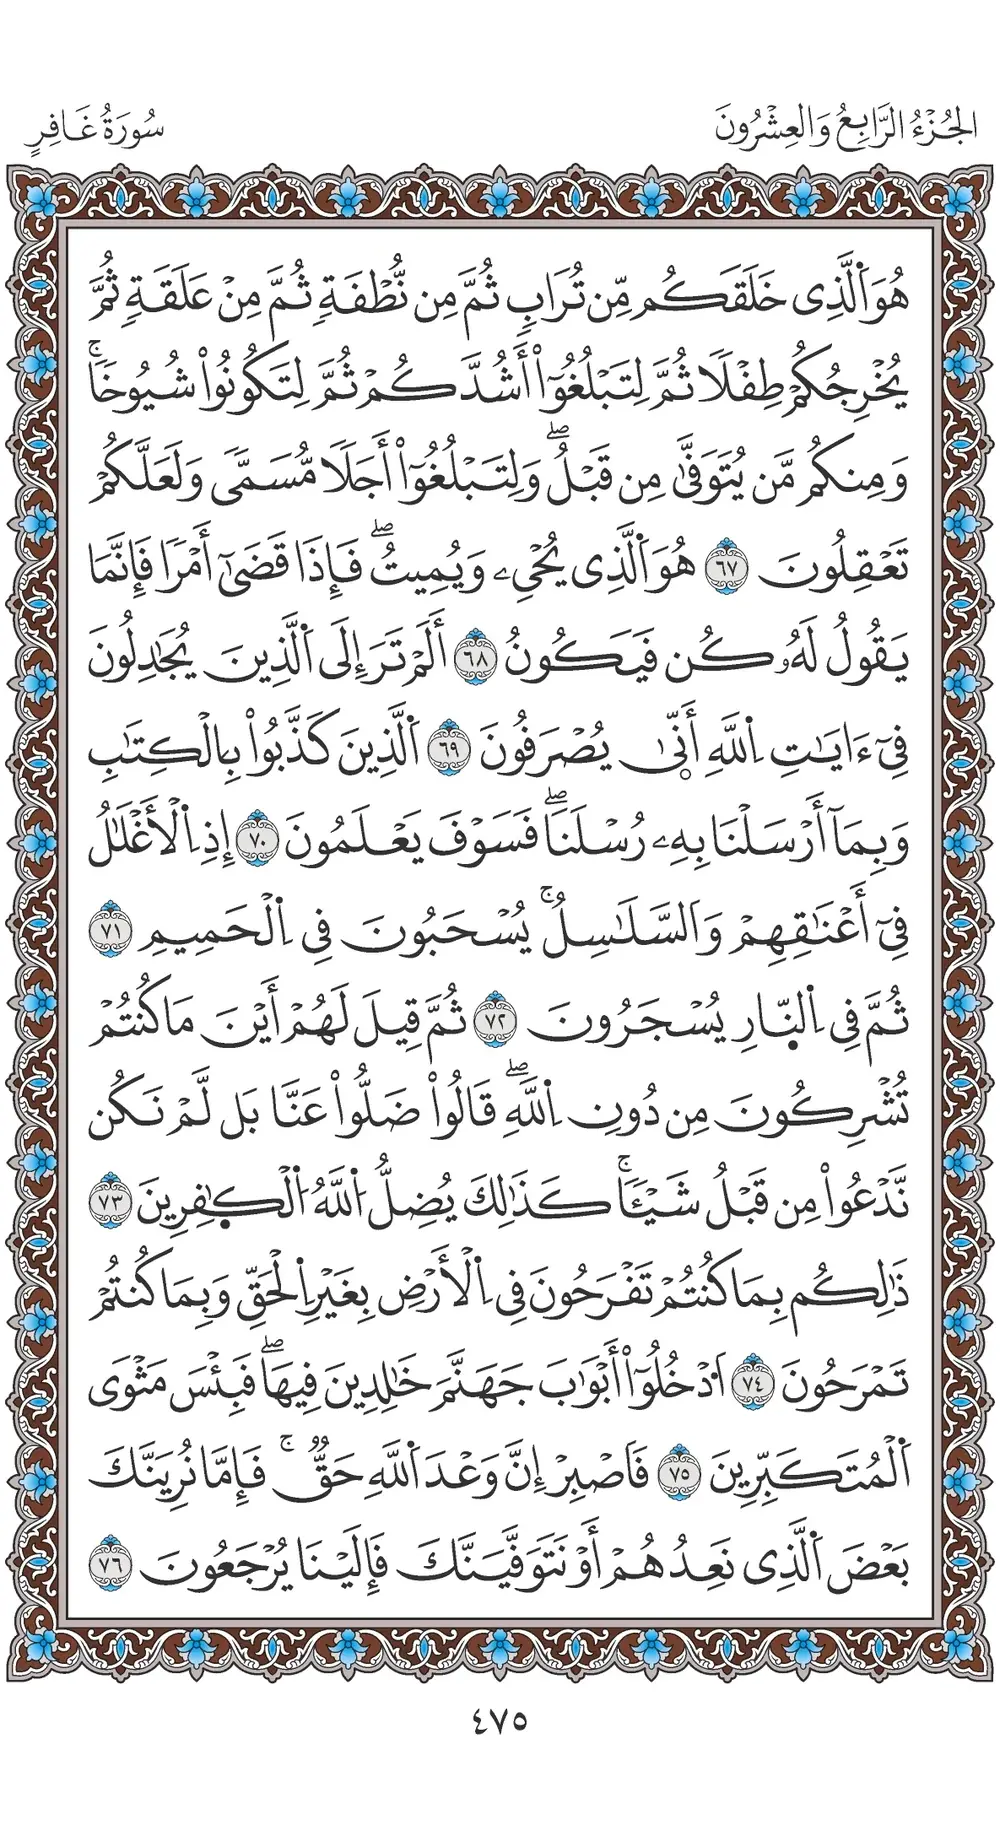 الجُزْءُ الرَّابِعُ وَالعِشْرُونَ
سُورَةُ غَافِرٍ
هُوَ اَ۬لَّذِى خَلَقَكُم مِّن تُرَابٍ ثُمَّ مِن نُّطْفَةٍ ثُمَّ مِنْ عَلَقَةٍ ثُمَّ
يُخْرِجُكُمْ طِفْلًا ثُمَّ لِتَبْلُغُوٓا۟ أَشُدَّكُمْ ثُمَّ لِتَكُونُوا۟ شُيُوخًاۚ
وَمِنكُم مَّن يُتَوَفَّىٰ مِن قَبْلُۖ وَلِتَبْلُغُوٓا۟ أَجَلًا مُّسَمًّى وَلَعَلَّكُمْ
تَعْقِلُونَ ٦٧ هُوَ اَ۬لَّذِى يُحْىِۦ وَيُمِيتُۖ فَإِذَا قَضَىٰٓ أَمْرًا فَإِنَّمَا
يَقُولُ لَهُۥ كُن فَيَكُونُ ٦٨ أَلَمْ تَرَ إِلَى اَ۬لَّذِينَ يُجَٰدِلُونَ
فِىٓ ءَايَٰتِ اِ۬للَّهِ أَنّ۪ىٰ يُصْرَفُونَ ٦٩ اَ۬لَّذِينَ كَذَّبُوا۟ بِالْكِتَٰبِ
وَبِمَآ أَرْسَلْنَا بِهِۦ رُسْلَنَاۖ فَسَوْفَ يَعْلَمُونَ ٧٠ إِذِ اِ۬لْأَغْلَٰلُ
فِىٓ أَعْنَٰقِهِمْ وَاَلسَّلَٰسِلُۚ يُسْحَبُونَ فِى اِ۬لْحَمِيمِ ٧١
ثُمَّ فِى اِ۬لنّ۪ارِ يُسْجَرُونَ ٧٢ ثُمَّ قِيلَ لَهُمْ أَيْنَ مَا كُنتُمْ
تُشْرِكُونَ مِن دُونِ اِ۬للَّهِۖ قَالُوا۟ ضَلُّوا۟ عَنَّا بَل لَّمْ نَكُن
نَّدْعُوا۟ مِن قَبْلُ شَيْـًٔاۚ كَذَٰلِكَ يُضِلُّ اُ۬للَّهُ اُ۬لْكٰ۪فِرِينَ ٧٣
ذَٰلِكُم بِمَا كُنتُمْ تَفْرَحُونَ فِى اِ۬لْأَرْضِ بِغَيْرِ اِ۬لْحَقِّ وَبِمَا كُنتُمْ
تَمْرَحُونَ ٧٤ اَ۟دْخُلُوٓا۟ أَبْوَٰبَ جَهَنَّمَ خَٰلِدِينَ فِيهَاۖ فَبِئْسَ مَثْوَى
اَ۬لْمُتَكَبِّرِينَ ٧٥ فَاَصْبِرْ إِنَّ وَعْدَ اَ۬للَّهِ حَقٌّۚ فَإِمَّا نُرِيَنَّكَ
بَعْضَ اَ۬لَّذِى نَعِدُهُمْ أَوْ نَتَوَفَّيَنَّكَ فَإِلَيْنَا يُرْجَعُونَ ٧٦
٤٧٥